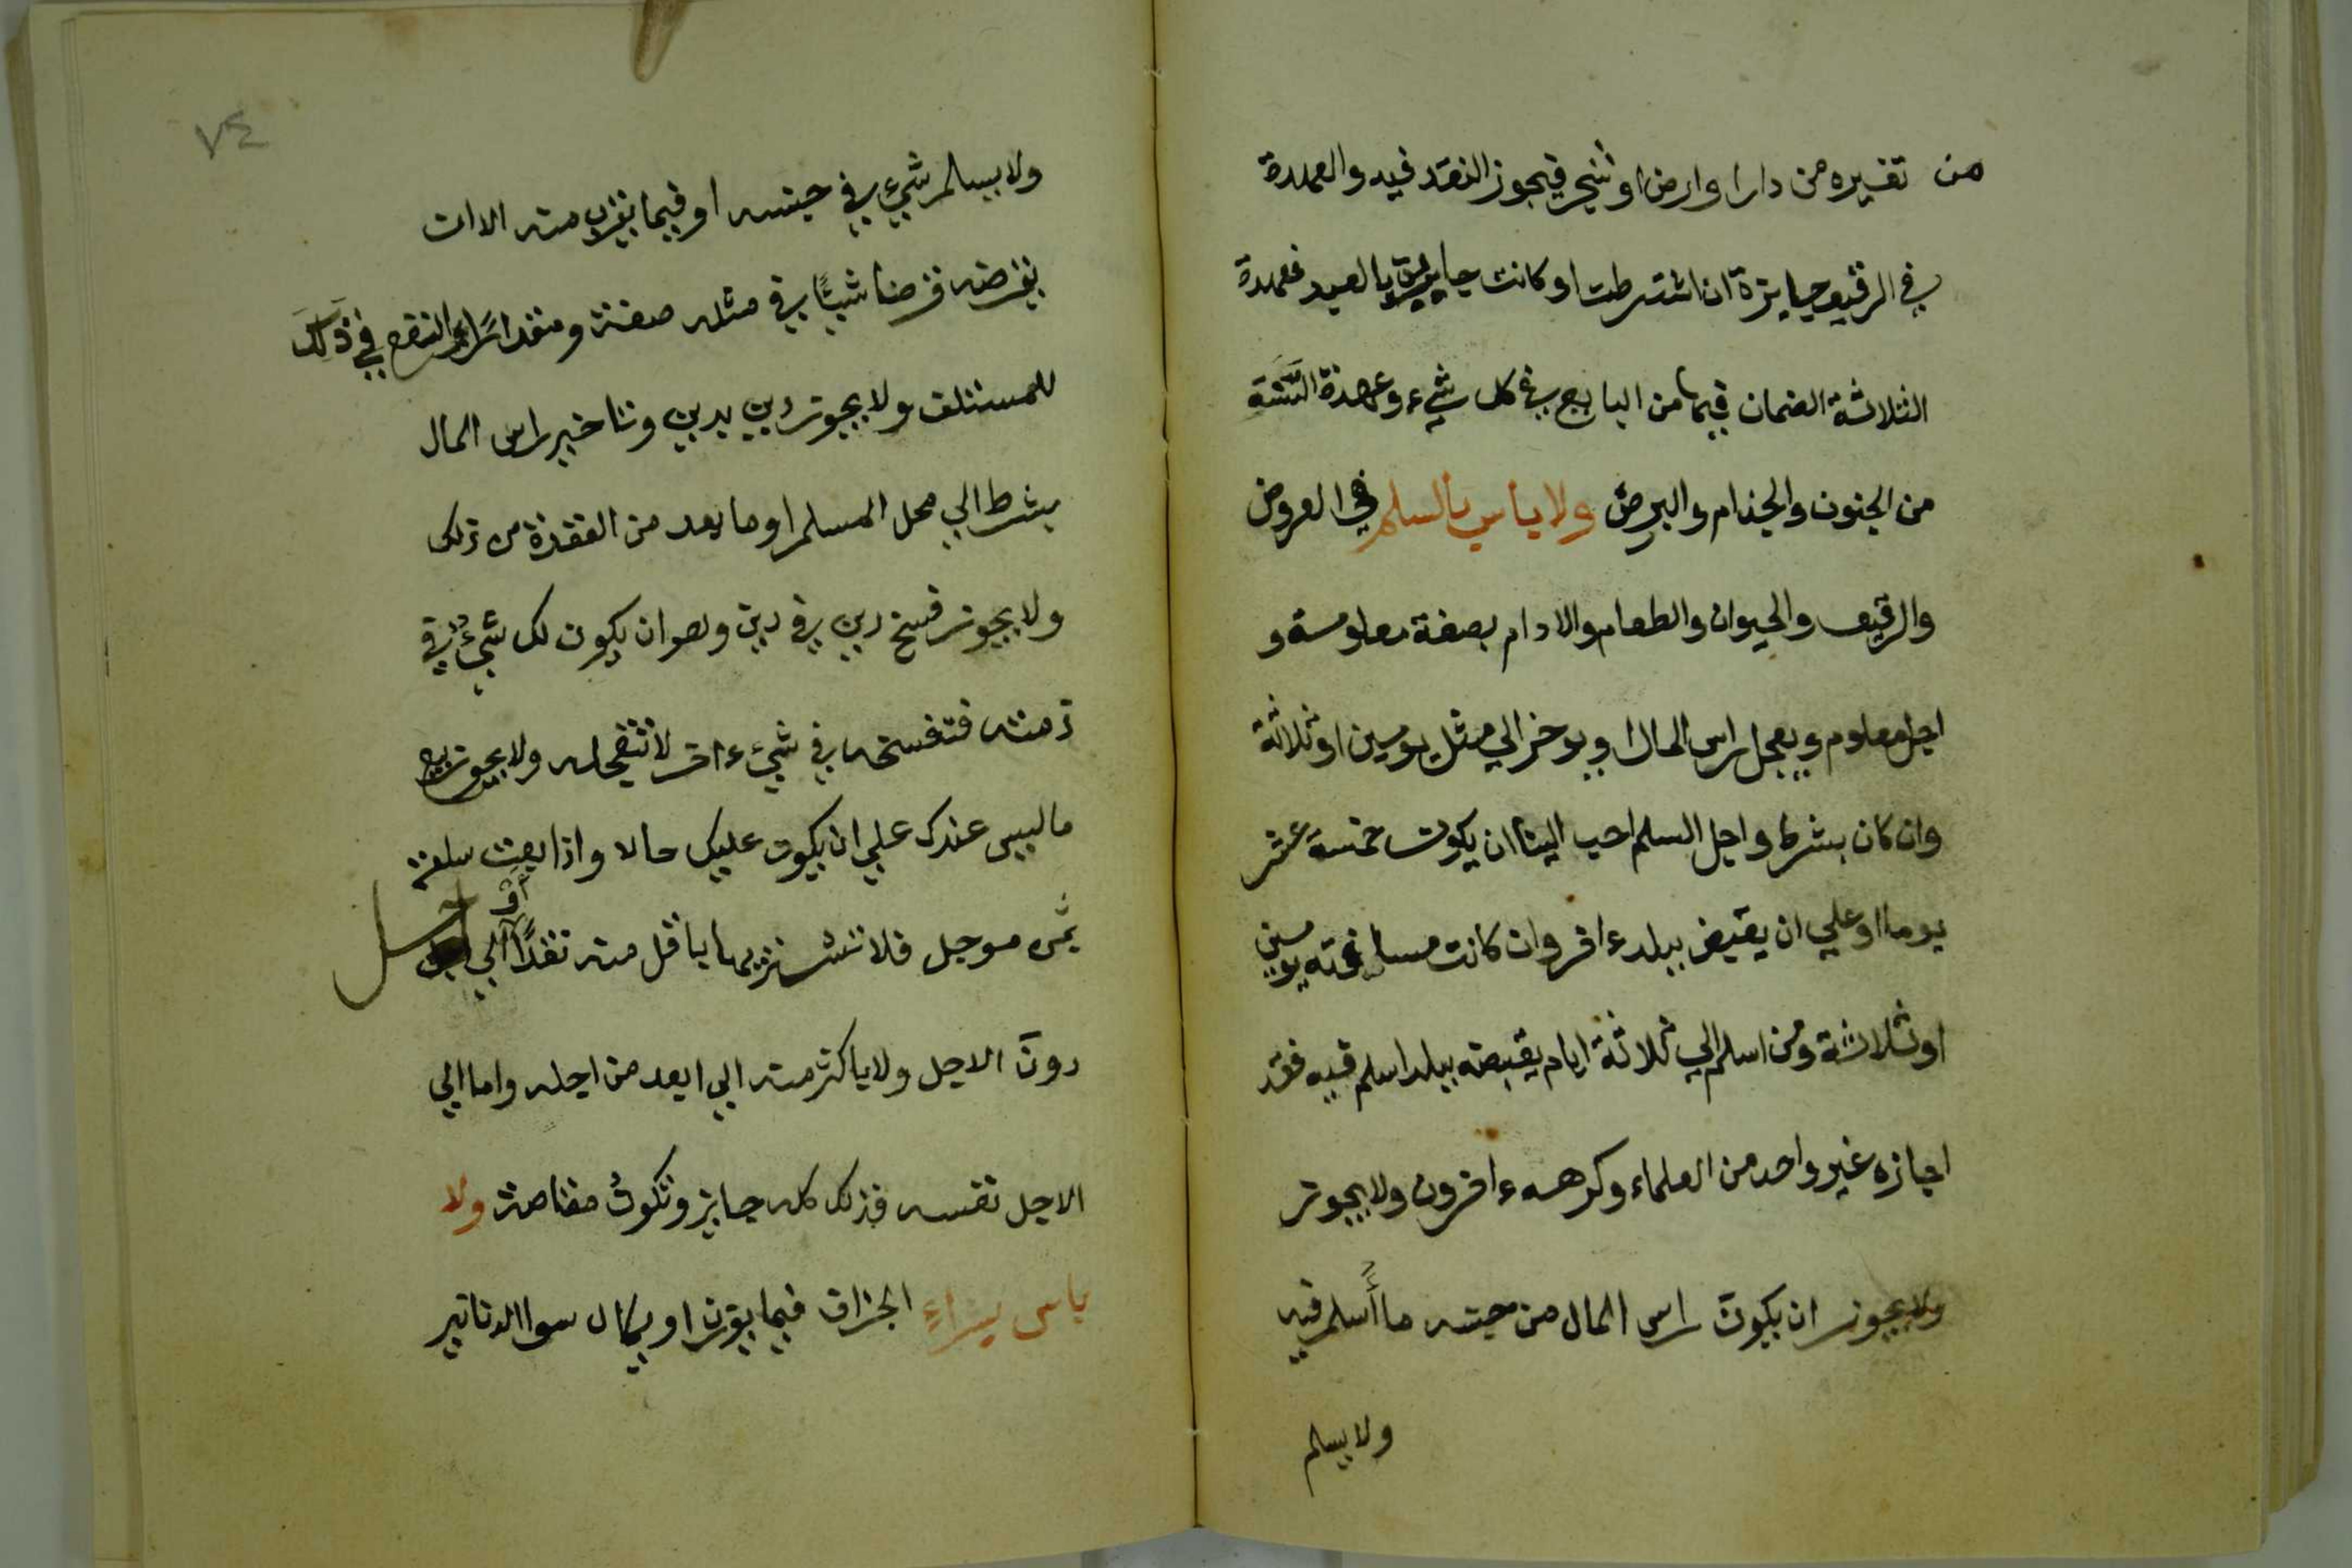 من تغيره من دار او ارض او شجر فيجوز النقد فيه والعهدة
في الرقيق جايزة ان اشترطت او كانت جارية بالبلد فعهدة
الثلاثة الضمان فيها من البايع في كل شيء وعهدة السنة
من الجنون والجذام والبرص ولا باس بالسلم في العروض
والرقيق والحيوان والطعام والادام بصفة معلومة و
اجل معلوم ويعجل راس المال او يوخر الي مثل يومين او ثلاثة
وان كان بشرط واجل السلم احب الينا ان يكون خمسة عشر
يوما او علي ان يقبض ببلد ءاخر وان كانت مسافته يومين
او ثلاثة ومن اسلم الي ثلاثة ايام يقبضه ببلد اسلم فيه فقد
اجازه غير واحد من العلماء وكرهه ءاخرون ولا يجوز
ولا يجوز ان يكون راس المال من جنسه ما أسلم فيه
ولا يسلم
٧٤
ولا يسلم شيء في جنسه او فيما يقرب منه الا ان
يقرضه قرضا شيئًا في مثله صفة ومقدارًا والنفع في ذلك
للمستلف ولا يجوز دين بدين وتاخير راس المال
بشرط الي محل السلم او ما بعد من العقدة من ذلك
ولا يجوز فسخ دين في دين وهو ان يكون لك شيءٌ في
ذمته فتفسخه في شيء ءاخر لا تتعجله ولا يجوز بيع
ما ليس عندك علي ان يكون عليك حالا واذا بعت سلعة
بثمن موجل فلا تشتريها باقل منه نقدًا أو الي اجل
دون الاجل ولا باكثر منه الي ابعد من اجله واما الي
الاجل نفسه فذلك كله جايز وتكون مقاصة ولا
باس بشراء الجزاف فيما يوزن او يكال سوا الدنانير